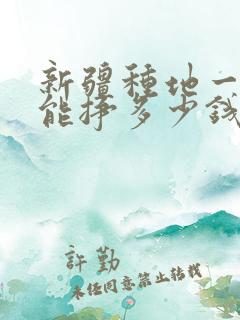 新疆種地一
能掙多少錢
許勤
未经同意禁止转载